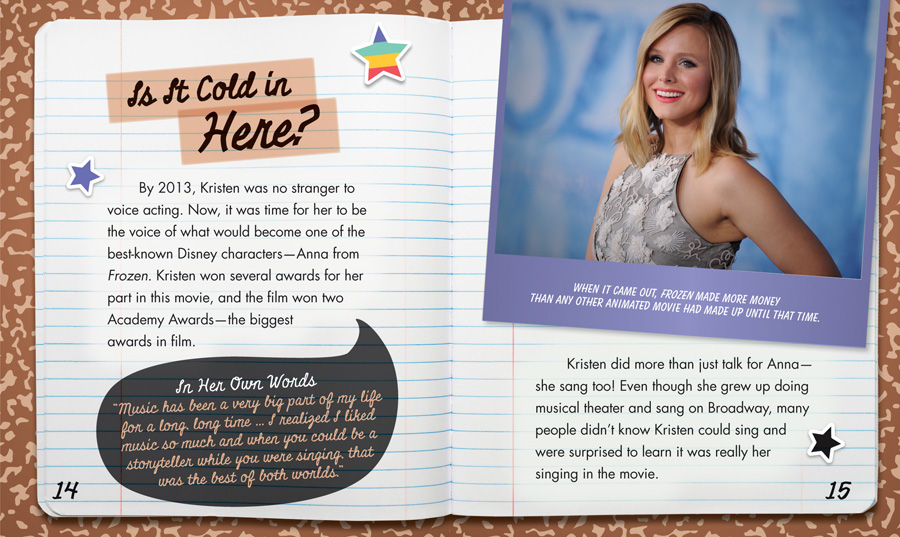 Is It Cold in
Here?
By 2013, Kristen was no stranger to
voice acting. Now, it was time for her to be
the voice of what would become one of the
best-known Disney characters—Anna from
Frozen. Kristen won several awards for her
part in this movie, and the film won two
Academy Awards—the biggest
awards in film.
In Her Own Words
“Music has been a very big part of my life
for a long, long time ... I realized I liked
music so much and when you could be a
storyteller while you were singing, that
was the best of both worlds.”
14
OZEN
WHEN IT CAME OUT, FROZEN MADE MORE MONEY
THAN ANY OTHER ANIMATED MOVIE HAD MADE UP UNTIL THAT TIME.
Kristen did more than just talk for Anna—
she sang too! Even though she grew up doing
musical theater and sang on Broadway, many
people didn’t know Kristen could sing and
were surprised to learn it was really her
singing in the movie.
15